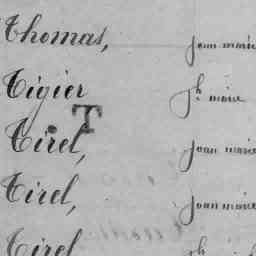 Thomas, jean marie
Tigier jh marie
T
Tirel, jean marie
Tirel, jean marie
Tirel jh